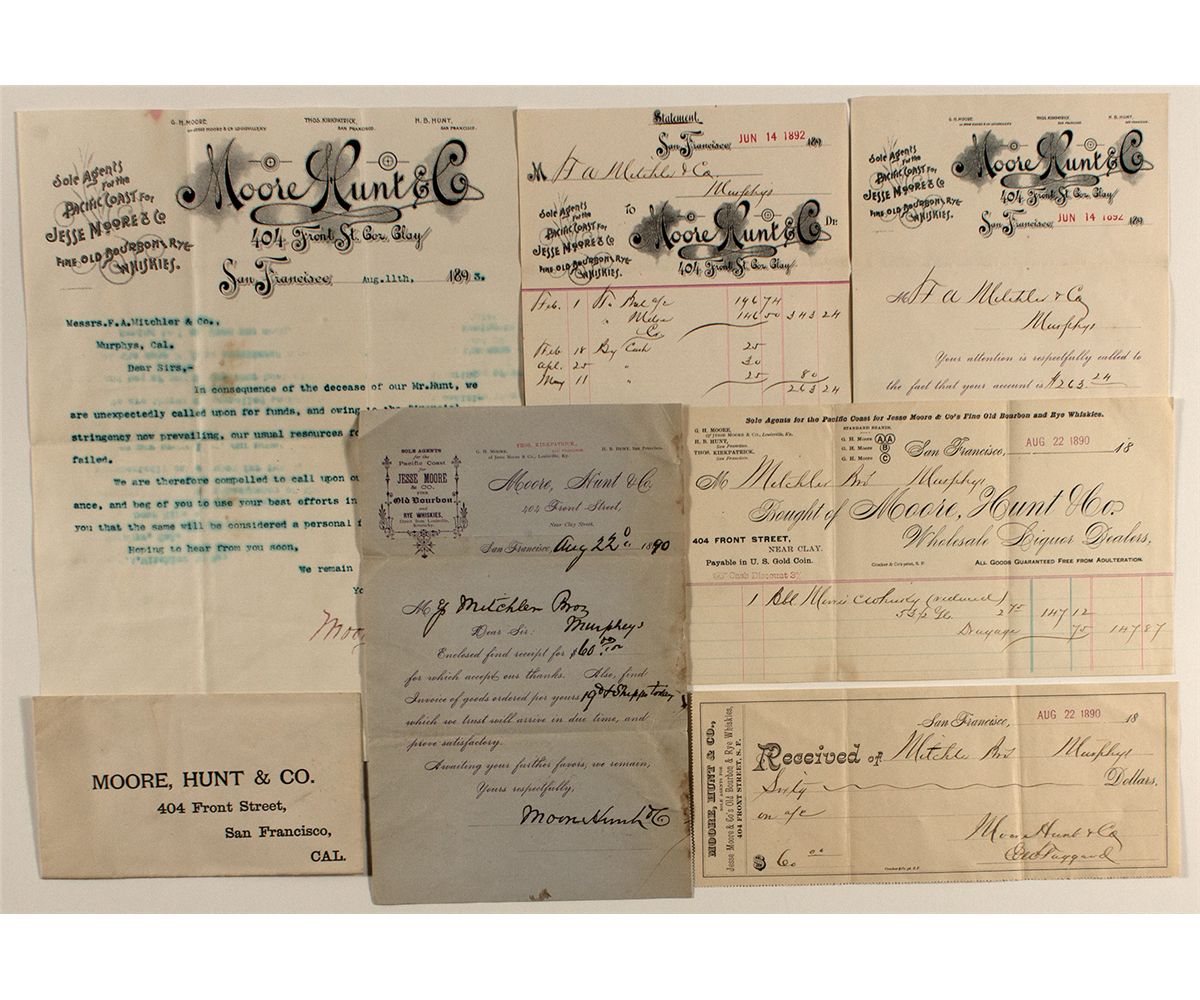 G. H. MOORE,
of JESSE MOORE & CO LOUISVILLE KY.
THOS. KIRKPATRICK,
SAN FRANCISCO.
H. B. HUNT,
SAN FRANCISCO.
Sole Agents
for the
Pacific Coast For
Jesse Moore & Co
Fine Old Bourbon & Rye
Whiskies.
Moore Hunt & Co
404 Front St. Cor. Clay
San Francisco, Aug. 11th, 1893.
Messrs. F. A. Mitchler & Co.,
Murphys, Cal.
Dear Sirs,-
In consequence of the decease of our Mr. Hunt, we
are unexpectedly called upon for funds, and owing to the financial
stringency now prevailing, our usual resources
failed.
We are therefore compelled to call upon
ance, and beg of you to use your best efforts in
you that the same will be considered a personal
Hoping to hear from you soon,
We remain
Yo
Moo
Statement.
San Francisco, JUN 14 1892 189
M F A Mitchler & Co.
Murphys
Sole Agents
for the
Pacific Coast For
Jesse Moore & Co
Fine Old Bourbon & Rye
Whiskies.
To Moore Hunt & Co Dr.
404 Front St. Cor. Clay
Feb. 1 To Bal a/c 196 74
" Mdse 146 50 343 24
Feb 18 By Cash 25
Apl. 25 " 30
May 11 " 25 80
263 24
G. H. MOORE,
of JESSE MOORE & CO LOUISVILLE KY.
THOS. KIRKPATRICK
SAN FRANCISCO
H. B. HUNT,
SAN FRANCISCO.
Sole Agents
for the
Pacific Coast For
Jesse Moore & Co
Fine Old Bourbon & Rye
Whiskies.
Moore Hunt & Co
404 Front St. Cor. Clay
San Francisco JUN 14 1892 189
M F A Mitchler & Co
Murphys
Your attention is respectfully called to
the fact that your account is $263.24
SOLE AGENTS
for the
Pacific Coast
for
JESSE MOORE
& CO.
FINE
Old Bourbon
and
RYE WHISKIES,
Direct from Louisville,
Kentucky.
G. H. MOORE,
of Jesse Moore & Co., Louisville, Ky.
THOS. KIRKPATRICK,
SAN FRANCISCO
H. B. HUNT, San Francisco.
Moore, Hunt & Co.
404 Front Street,
Near Clay Street,
San Francisco, Aug 22d 1890
M Mitchler Bros
Murphys
Dear Sir:
Enclosed find receipt for $60 00/100
for which accept our thanks. Also, find
Invoice of goods ordered per yours 19th & Shipped today
which we trust will arrive in due time, and
prove satisfactory.
Awaiting your further favors, we remain,
Yours respectfully,
Moore Hunt & Co
Sole Agents for the Pacific Coast for Jesse Moore & Co's Fine Old Bourbon and Rye Whiskies.
G. H. MOORE,
of JESSE MOORE & CO., Louisville, Ky.
H. B. HUNT,
San Francisco.
THOS. KIRKPATRICK,
San Francisco.
STANDARD BRANDS.
G. H. Moore AA
G. H. Moore B
G. H. Moore C
San Francisco, AUG 22 1890 18
M Mitchler Bros Murphys
Bought of Moore, Hunt & Co.
404 FRONT STREET,
NEAR CLAY.
Wholesale Liquor Dealers,
Payable in U. S. Gold Coin.
Crocker & Co's print, S. F.
ALL GOODS GUARANTEED FREE FROM ADULTERATION.
Cash Discount 3%
1 Bbl (reduced)
53 1/2 2 75 147 12
Drayage 75 147 87
MOORE, HUNT & CO.,
SOLE AGENTS FOR
Jesse Moore & Co's Old Bourbon & Rye Whiskies,
404 FRONT STREET, S. F.
San Francisco, AUG 22 1890 18
Received of Mitchler Bros Murphys
Sixty Dollars,
on a/c
Moore Hunt & Co
$ 60.00
MOORE, HUNT & CO.
404 Front Street,
San Francisco,
CAL.